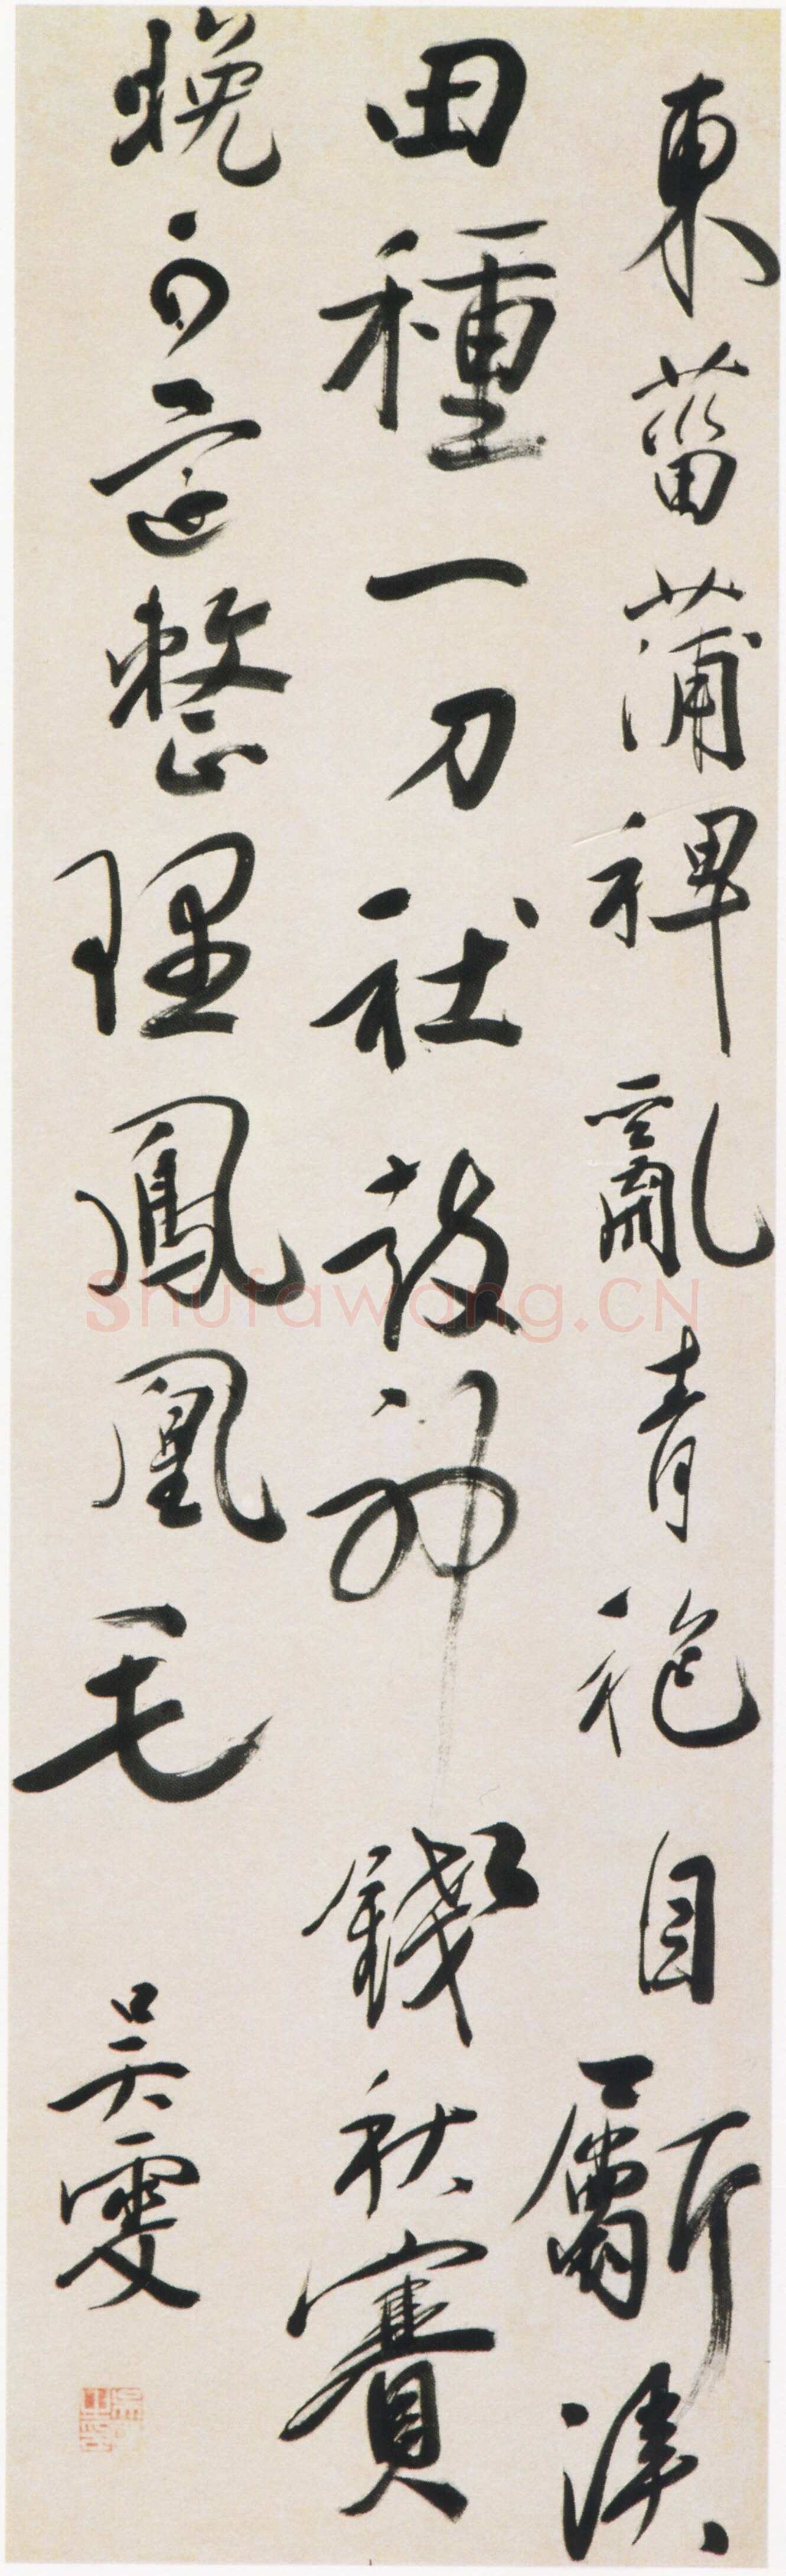 東菑蒲稗亂青袍自斸溪
田種一刀社鼓神錢秋賽
晚整理鳳凰毛
吳雯
Shufawang.CN